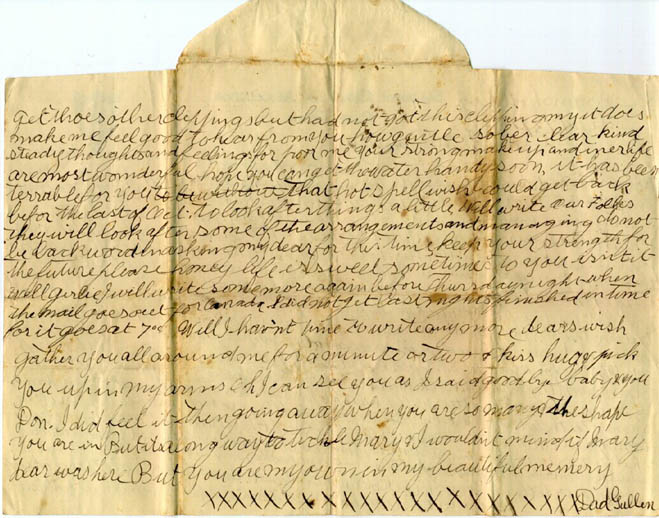 get thoes other clippings but had not got this clippin o my it does
make me feel good to hear from you how gentle sober clear kind
steady thoughts and feelings for poor me your strong make up and inerlife
are most wonderful hope you can get the water handy soon it has been
terrable for you to be without that hot spell wish could get back
befor the last of Oct. to look after things a little Will write our folks
they will look after some of the arrangements and managing do not
be backword in asking my dear for this time, keep your strength for
the future please honey life is sweet sometime to you isn't it
Well girlie I will write some more again before thursday night when
the mail goes out for Canada, I did not get last nights finished in time
for it goes at 7 Will I havnt time to write any more, dears wish
gather you all around me for a minute or two & kiss hugg pick
you up in my arms Oh I can see you as I said good by baby & you
Don. I did feel it then going away when you are so many the shape
you are in But its a long way to Mary & I wouldn't mind if Mary
dear was here But you are my own in my beautiful memery
XXXXXXXXXXXXXXXXXXXXXXX Dad Gullen